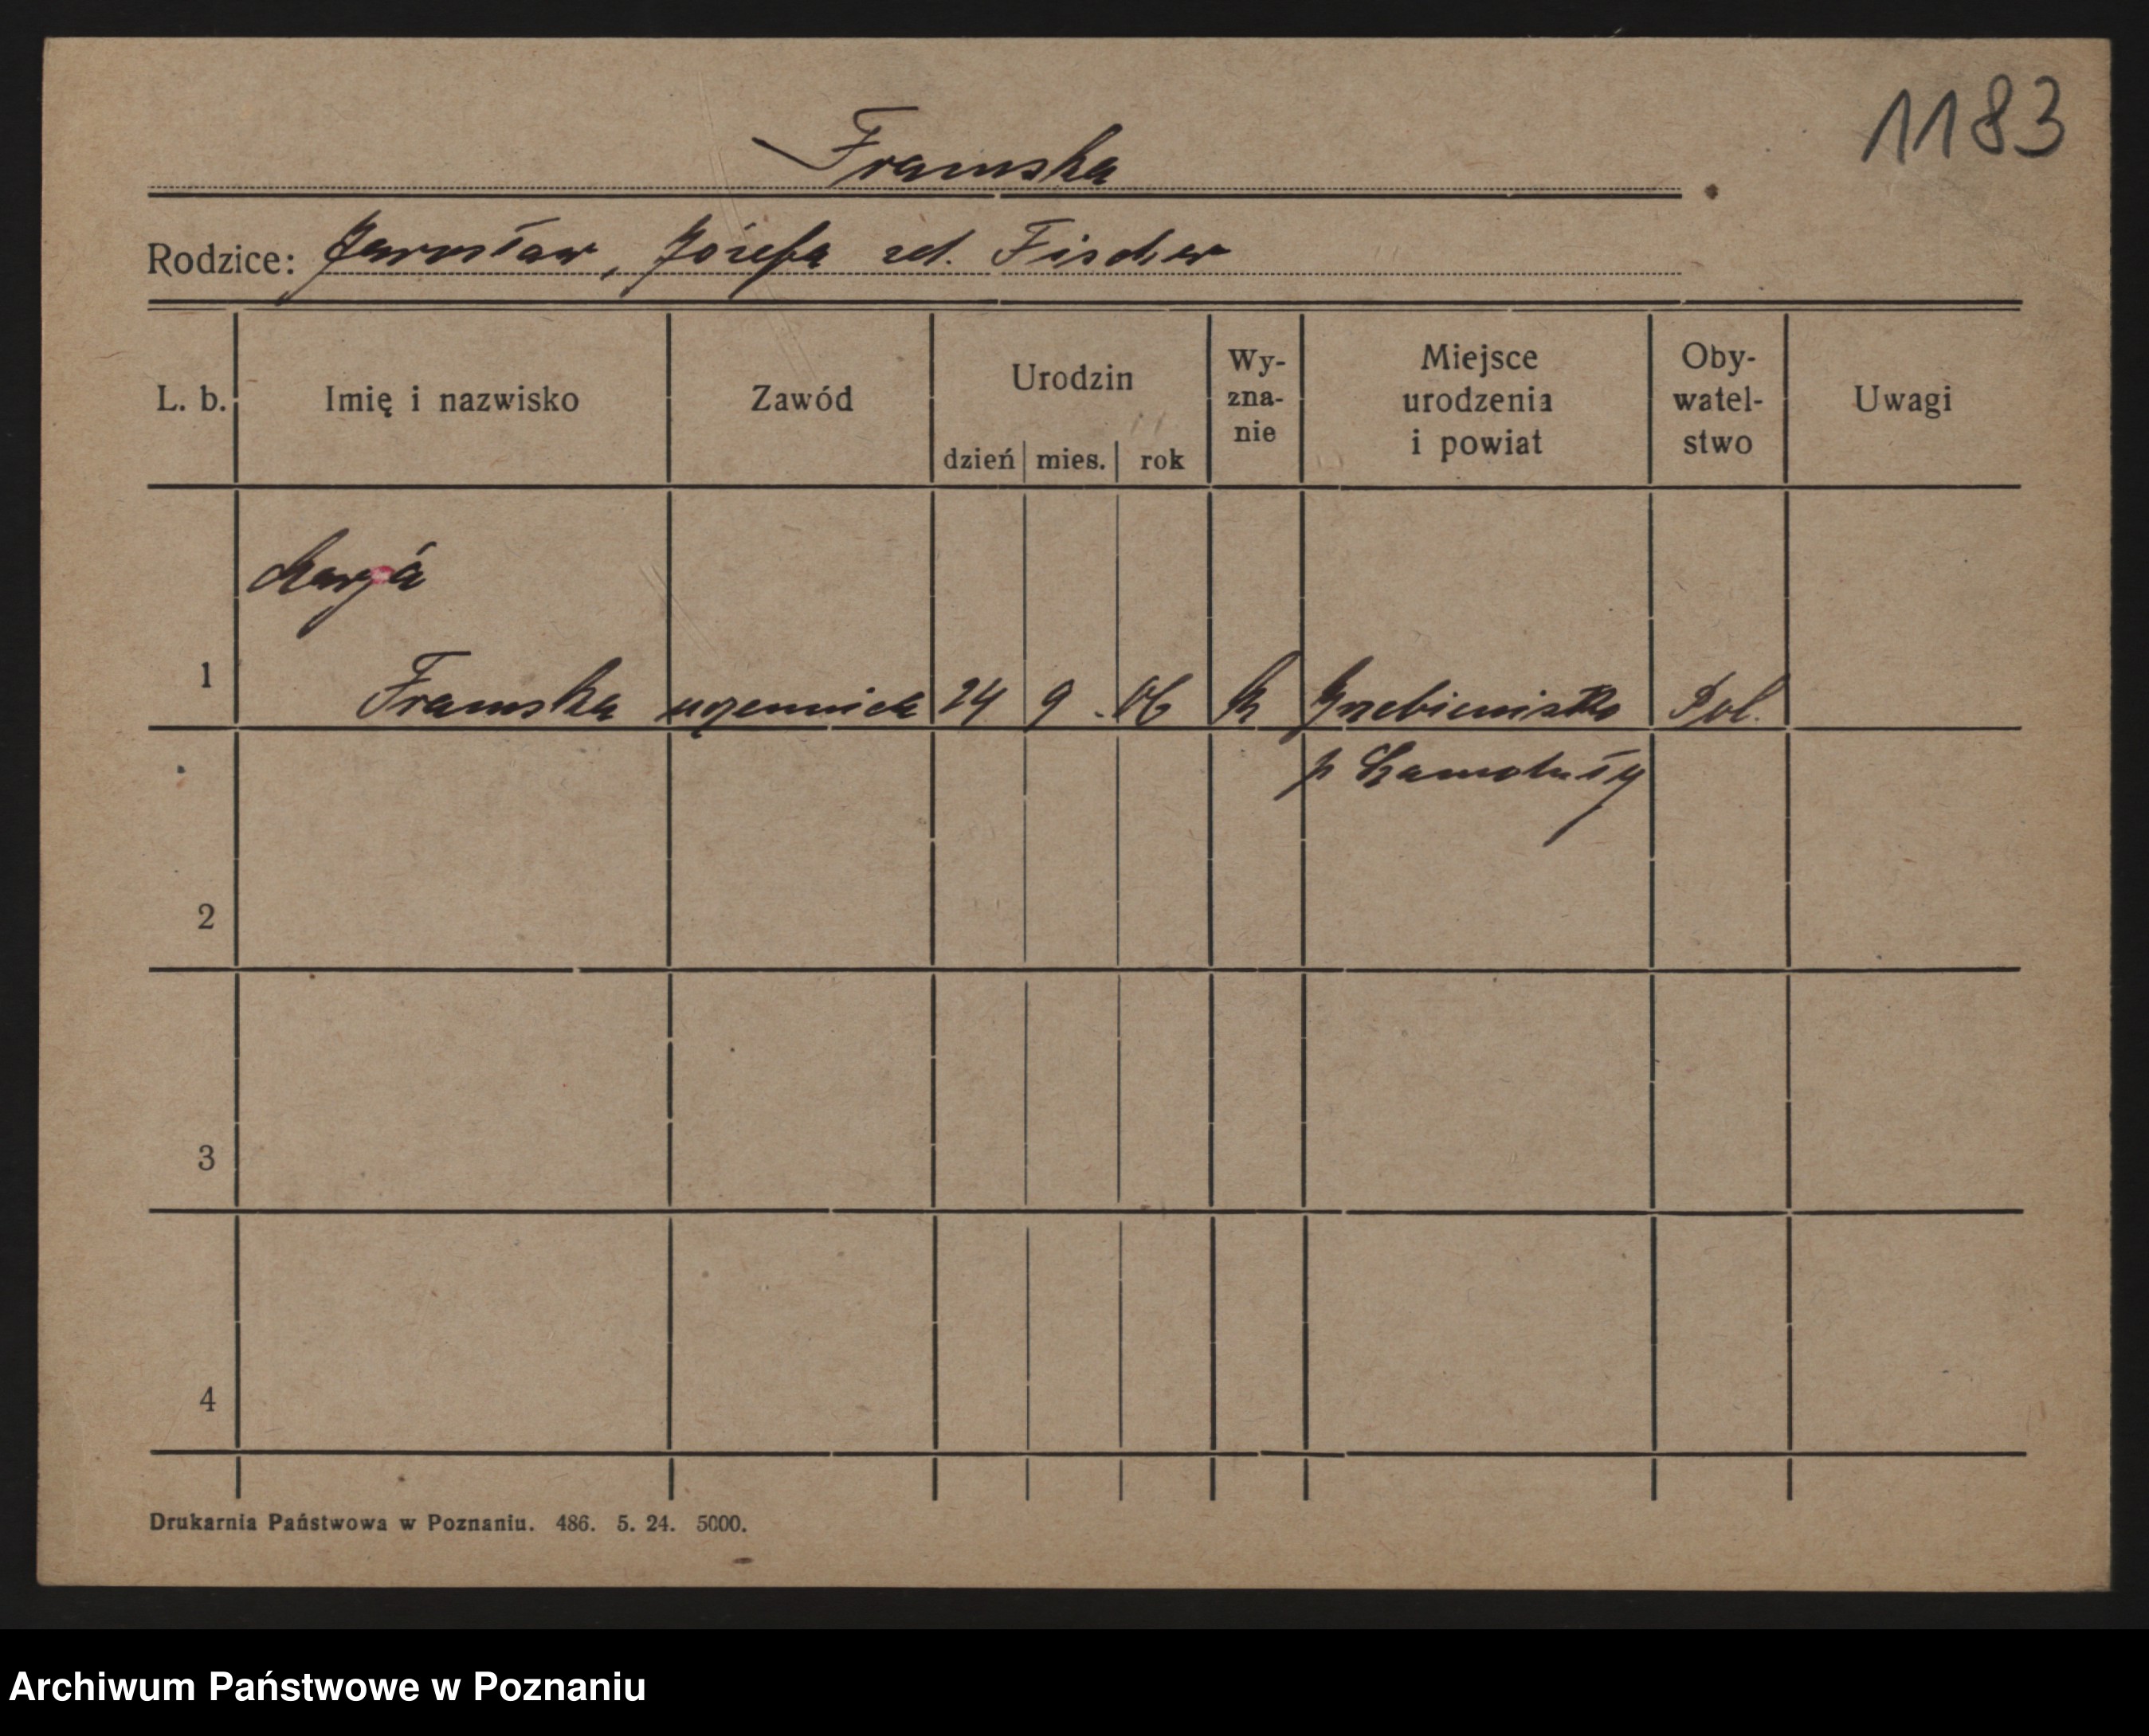 1183
Framska
Rodzice: Jarosław, Józefa zd. Fischer
L. b. Imię i nazwisko Zawód Urodzin dzień mies. rok Wy-zna-nie Miejsce urodzenia i powiat Oby-watel-stwo Uwagi
Marja
1 Framska uczennica 24 9 .06 k Grzebienisko Pol.
p Szamotuły
2
3
4
Drukarnia Państwowa w Poznaniu. 486. 5. 24. 5000.
Archiwum Państwowe w Poznaniu